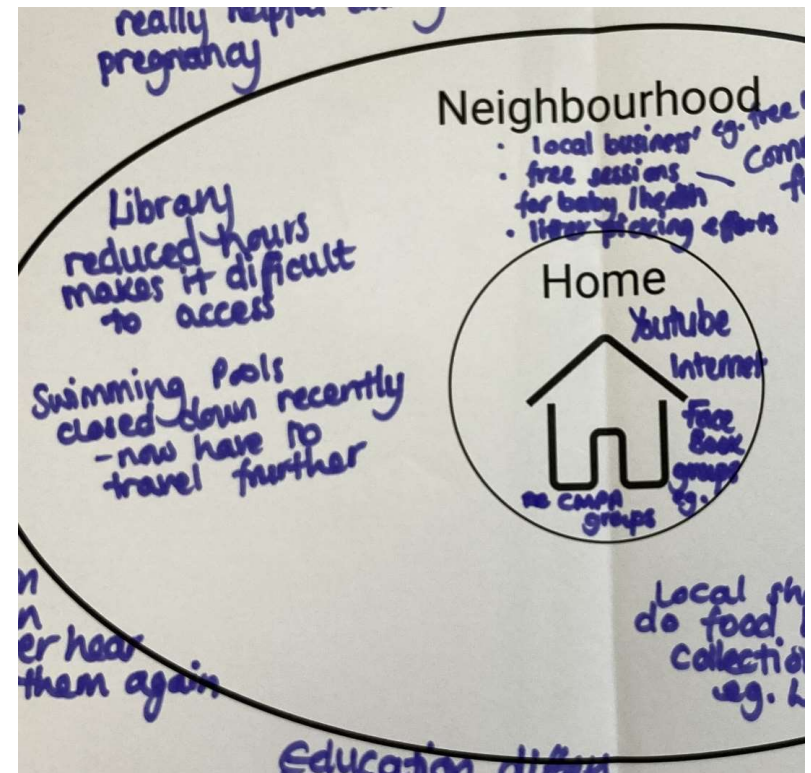 really helpful
pregnancy
Neighbourhood
• local business' eg. free
• free sessions —
for baby / health
• litter picking efforts
Library
reduced hours
makes it dificult
to access
Swimming Pools
closed down recently
- now have to
travel further
Home
Youtube
Internet
Face
Book
groups
eg.
CMPA
groups
er hear
them again
Local sh
do food
collectio
eg.
Education